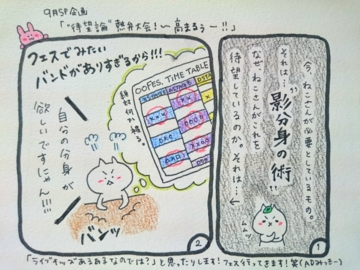 9月SP企画
「"待望論"熱弁大会!〜高まるぅー!!」
今、ねこさんが必要としているもの。
それは…
影分身の術
なぜ、ねこさんがこれを
待望しているのか。それは…←
1
フェスでみたい
バンドがありすぎるから!!!
OOFES. TIME TABLE
自分の分身が
欲しいですにゃん!!!
バンッ
2
「ライブキッズあるあるなのでは?」と思ったりします!フェス行ってきます!笑(ADみっきー)